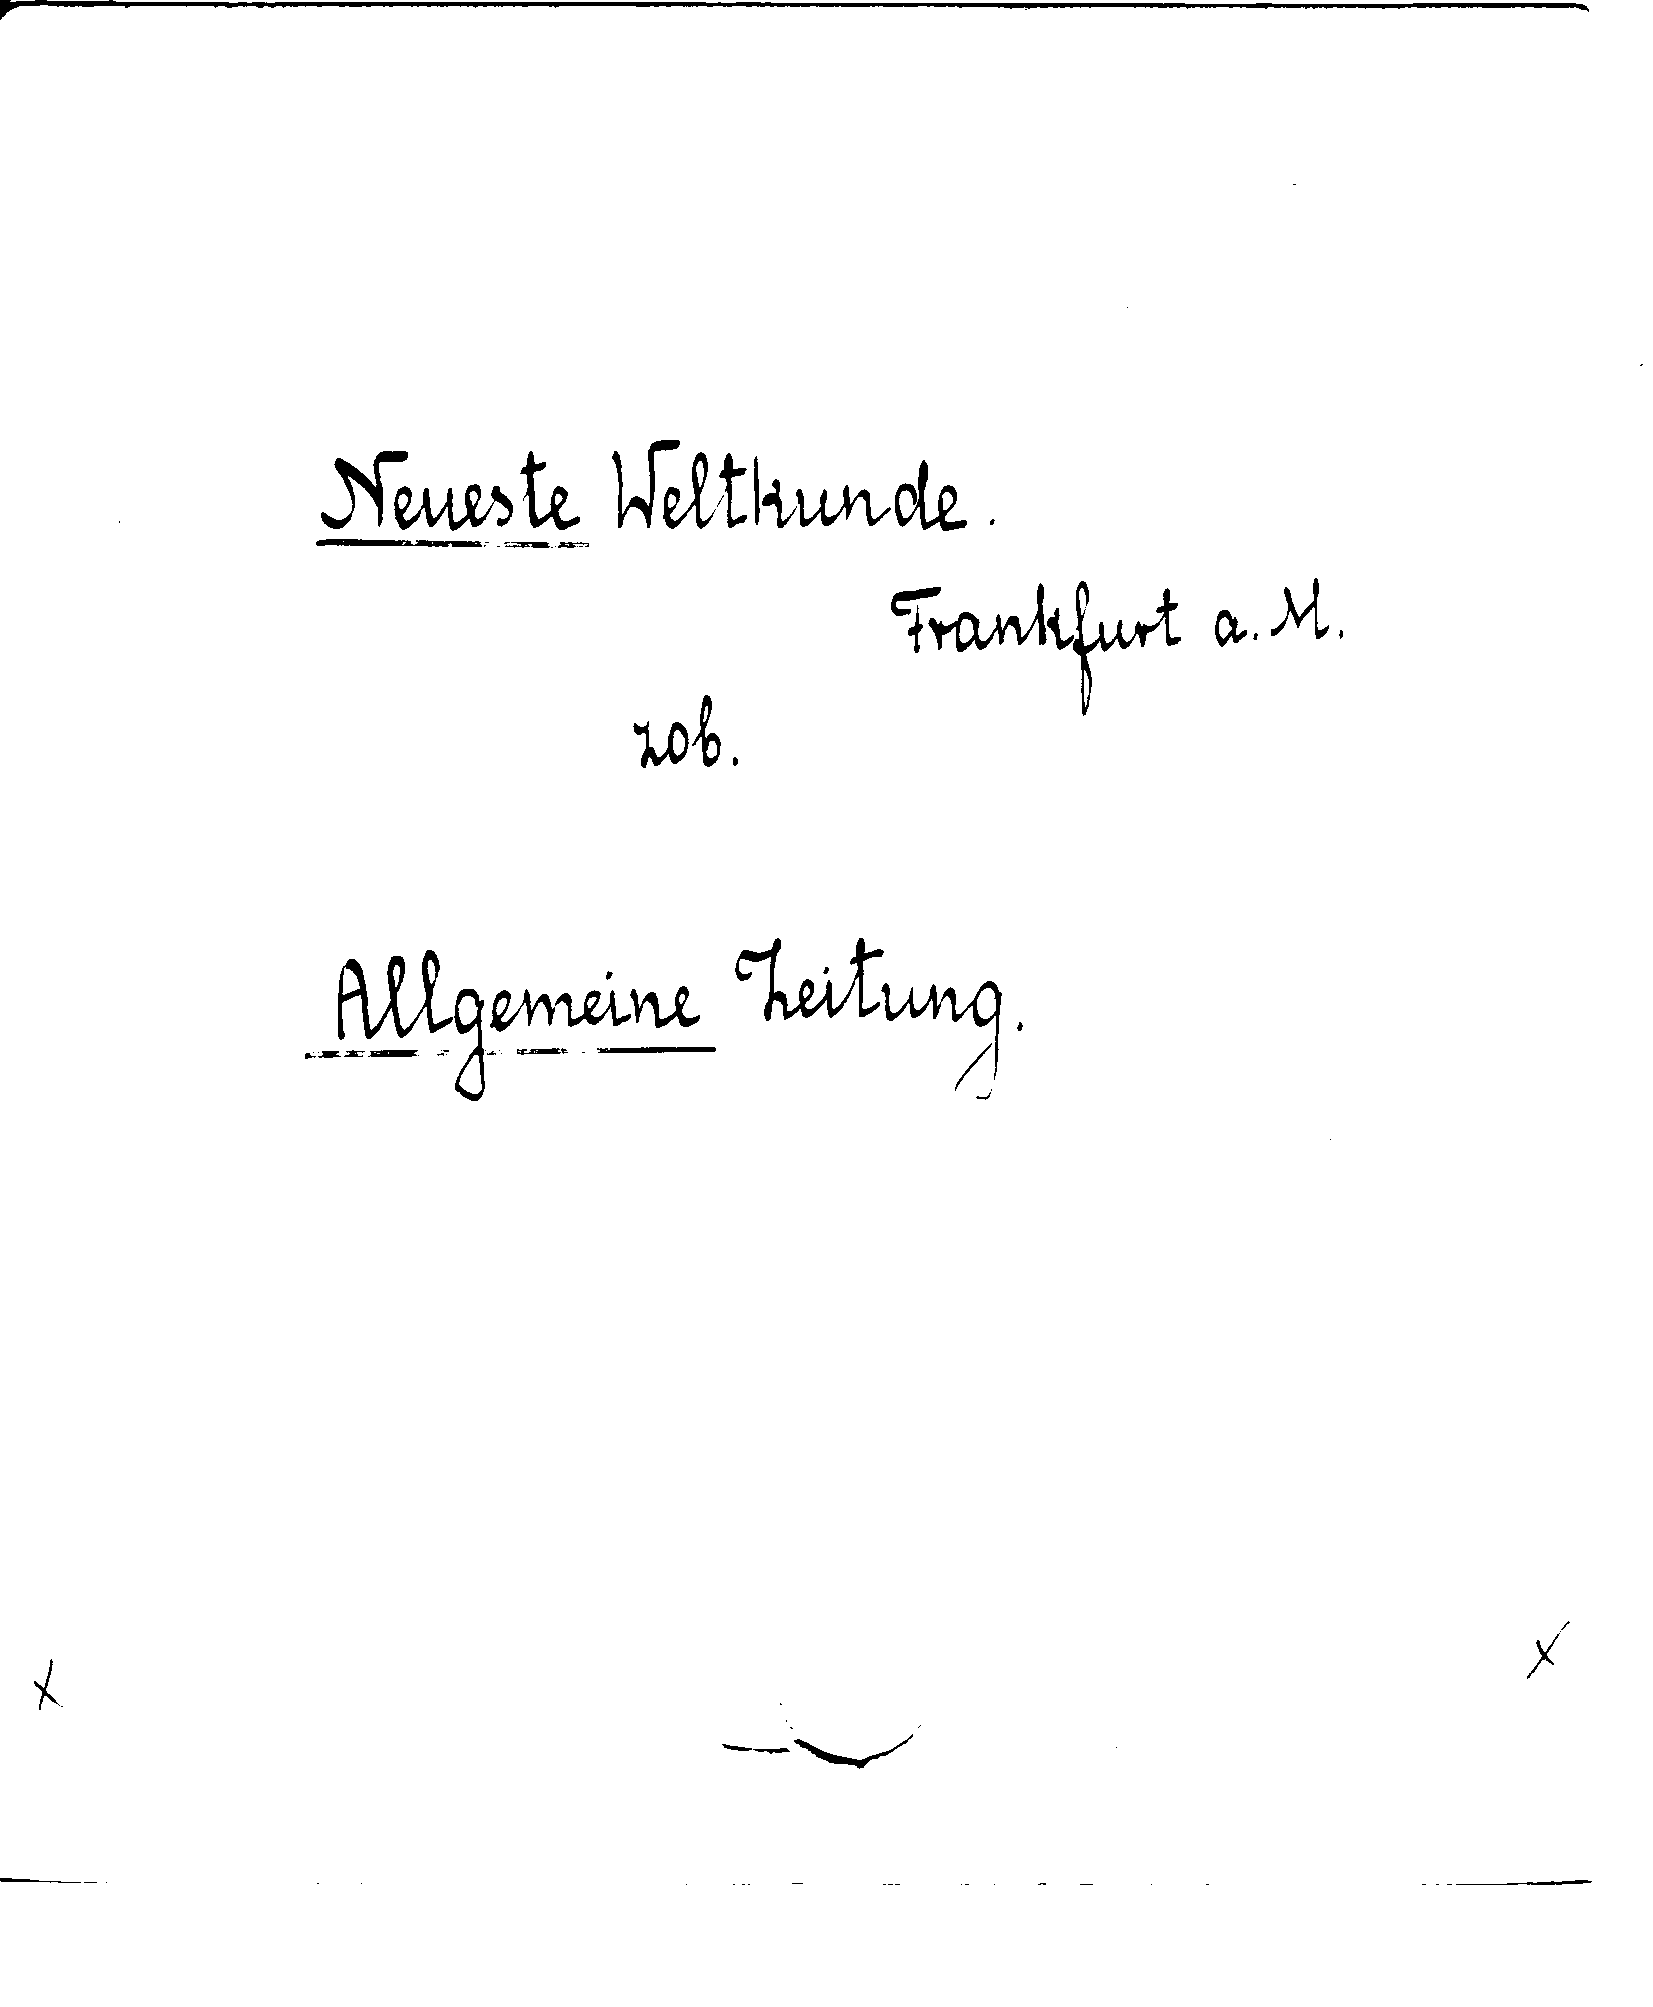 Neueste Weltkunde.
Frankfurt a. M.
zob.
Allgemeine Zeitung.